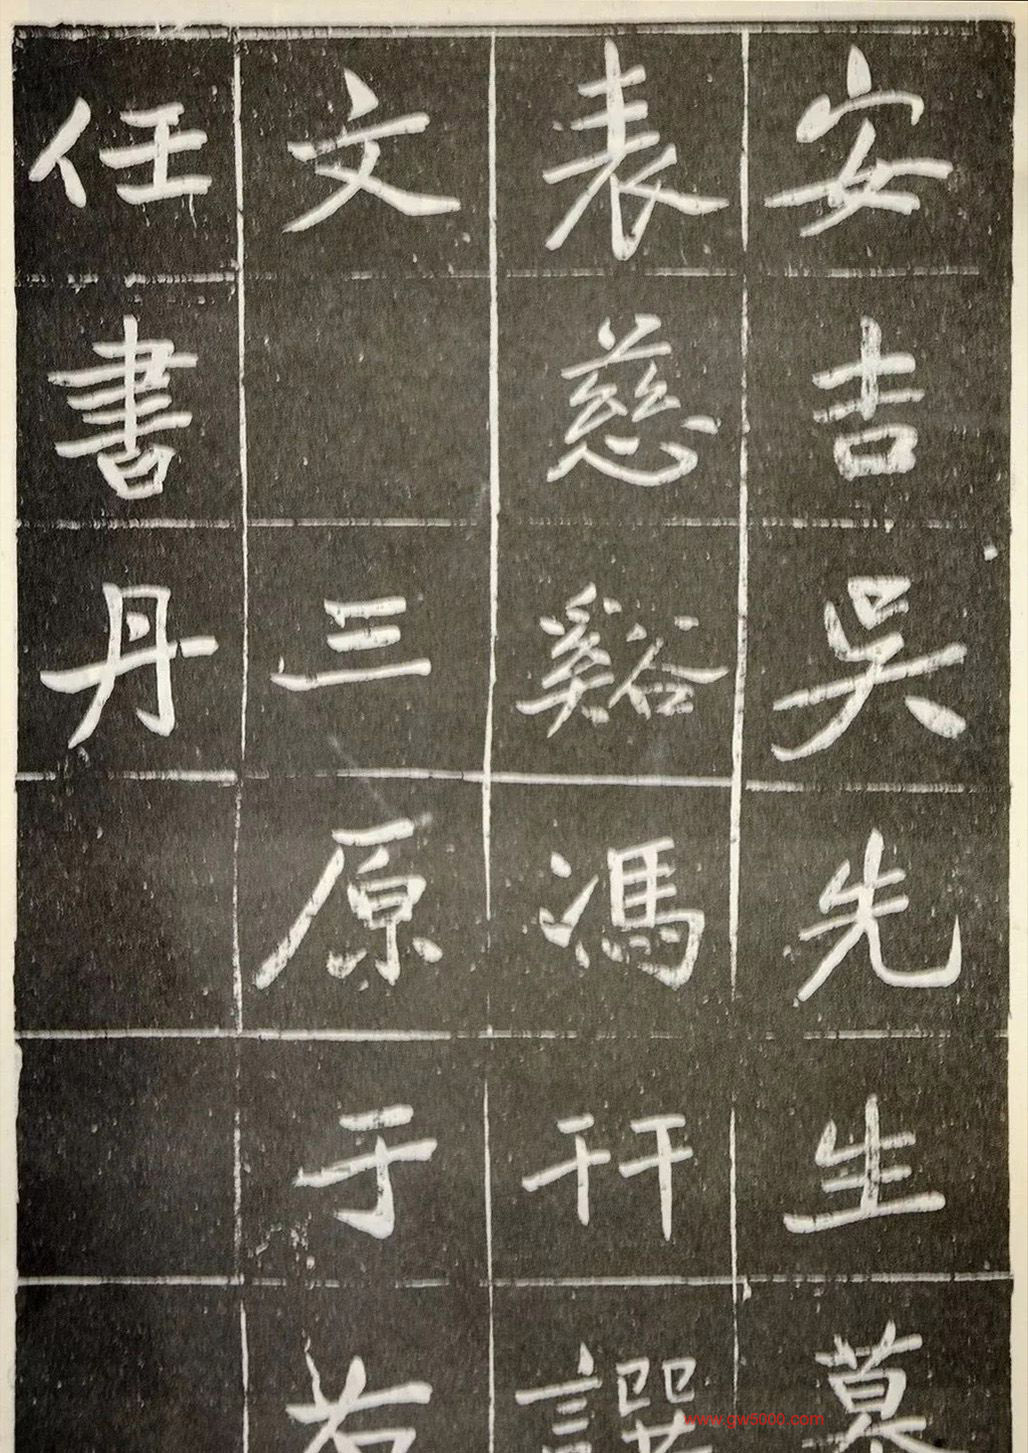 安吉吳先生墓
表慈谿馮幵譔
文三原于右
任書丹
www.gw5000.com